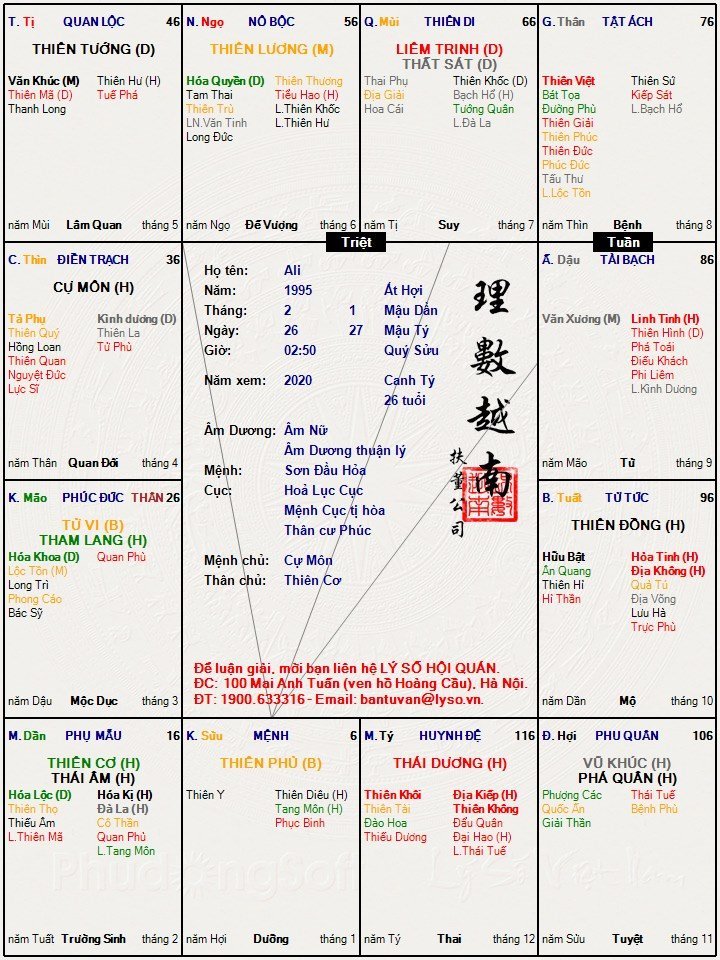 T. Tị QUAN LỘC 46
THIÊN TƯỚNG (D)
Văn Khúc (M) Thiên Hư (H)
Thiên Mã (D) Tuế Phá
Thanh Long
năm Mùi Lâm Quan tháng 5
N. Ngọ NÔ BỘC 56
THIÊN LƯƠNG (M)
Hóa Quyền (D) Thiên Thương
Tam Thai Tiểu Hao (H)
Thiên Trù L.Thiên Khốc
LN.Văn Tinh L.Thiên Hư
Long Đức
năm Ngọ Đế Vượng tháng 6
Q. Mùi THIÊN DI 66
LIÊM TRINH (D)
THẤT SÁT (D)
Thai Phụ Thiên Khốc (D)
Địa Giải Bạch Hổ (H)
Hoa Cái Tướng Quân
L.Đà La
năm Tị Suy tháng 7
G. Thân TẬT ÁCH 76
Thiên Việt Thiên Sứ
Bát Tọa Kiếp Sát
Đường Phù L.Bạch Hổ
Thiên Giải
Thiên Phúc
Thiên Đức
Phúc Đức
Tấu Thư
L.Lộc Tồn
năm Thìn Bệnh tháng 8
Triệt
Tuần
C. Thìn ĐIỀN TRẠCH 36
CỰ MÔN (H)
Tả Phụ Kình dương (D)
Thiên Quý Thiên La
Hồng Loan Tử Phù
Thiên Quan
Nguyệt Đức
Lực Sĩ
năm Thân Quan Đới tháng 4
Họ tên: Ali
Năm: 1995 Ất Hợi
Tháng: 2 1 Mậu Dần
Ngày: 26 27 Mậu Tý
Giờ: 02:50 Quý Sửu
Năm xem: 2020 Canh Tý
26 tuổi
Âm Dương: Âm Nữ
Âm Dương thuận lý
Mệnh: Sơn Đầu Hỏa
Cục: Hoả Lục Cục
Mệnh Cục tị hòa
Thân cư Phúc
Mệnh chủ: Cự Môn
Thân chủ: Thiên Cơ
理數越南
扶董公司
Để luận giải, mời bạn liên hệ LÝ SỐ HỘI QUÁN.
ĐC: 100 Mai Anh Tuấn (ven hồ Hoàng Cầu), Hà Nội.
ĐT: 1900.633316 - Email: bantuvan@lyso.vn.
Ấ. Dậu TÀI BẠCH 86
Văn Xương (M) Linh Tinh (H)
Thiên Hình (D)
Phá Toái
Điếu Khách
Phi Liêm
L.Kình Dương
năm Mão Tử tháng 9
K. Mão PHÚC ĐỨC THÂN 26
TỬ VI (B)
THAM LANG (H)
Hóa Khoa (D) Quan Phù
Lộc Tồn (M)
Long Trì
Phong Cáo
Bác Sỹ
năm Dậu Mộc Dục tháng 3
B. Tuất TỬ TỨC 96
THIÊN ĐỒNG (H)
Hữu Bật Hỏa Tinh (H)
Ân Quang Địa Không (H)
Thiên Hỉ Quả Tú
Hỉ Thần Địa Võng
Lưu Hà
Trực Phù
năm Dần Mộ tháng 10
M. Dần PHỤ MẪU 16
THIÊN CƠ (H)
THÁI ÂM (H)
Hóa Lộc (D) Hóa Kị (H)
Thiên Thọ Đà La (H)
Thiếu Âm Cô Thần
L.Thiên Mã Quan Phủ
L.Tang Môn
năm Tuất Trường Sinh tháng 2
K. Sửu MỆNH 6
THIÊN PHỦ (B)
Thiên Y Thiên Diêu (H)
Tang Môn (H)
Phục Binh
năm Hợi Dưỡng tháng 1
M. Tý HUYNH ĐỆ 116
THÁI DƯƠNG (H)
Thiên Khôi Địa Kiếp (H)
Thiên Tài Thiên Không
Đào Hoa Đẩu Quân
Thiếu Dương Đại Hao (H)
L.Thái Tuế
năm Tý Thai tháng 12
Đ. Hợi PHU QUÂN 106
VŨ KHÚC (H)
PHÁ QUÂN (H)
Phượng Các Thái Tuế
Quốc Ấn Bệnh Phù
Giải Thần
năm Sửu Tuyệt tháng 11